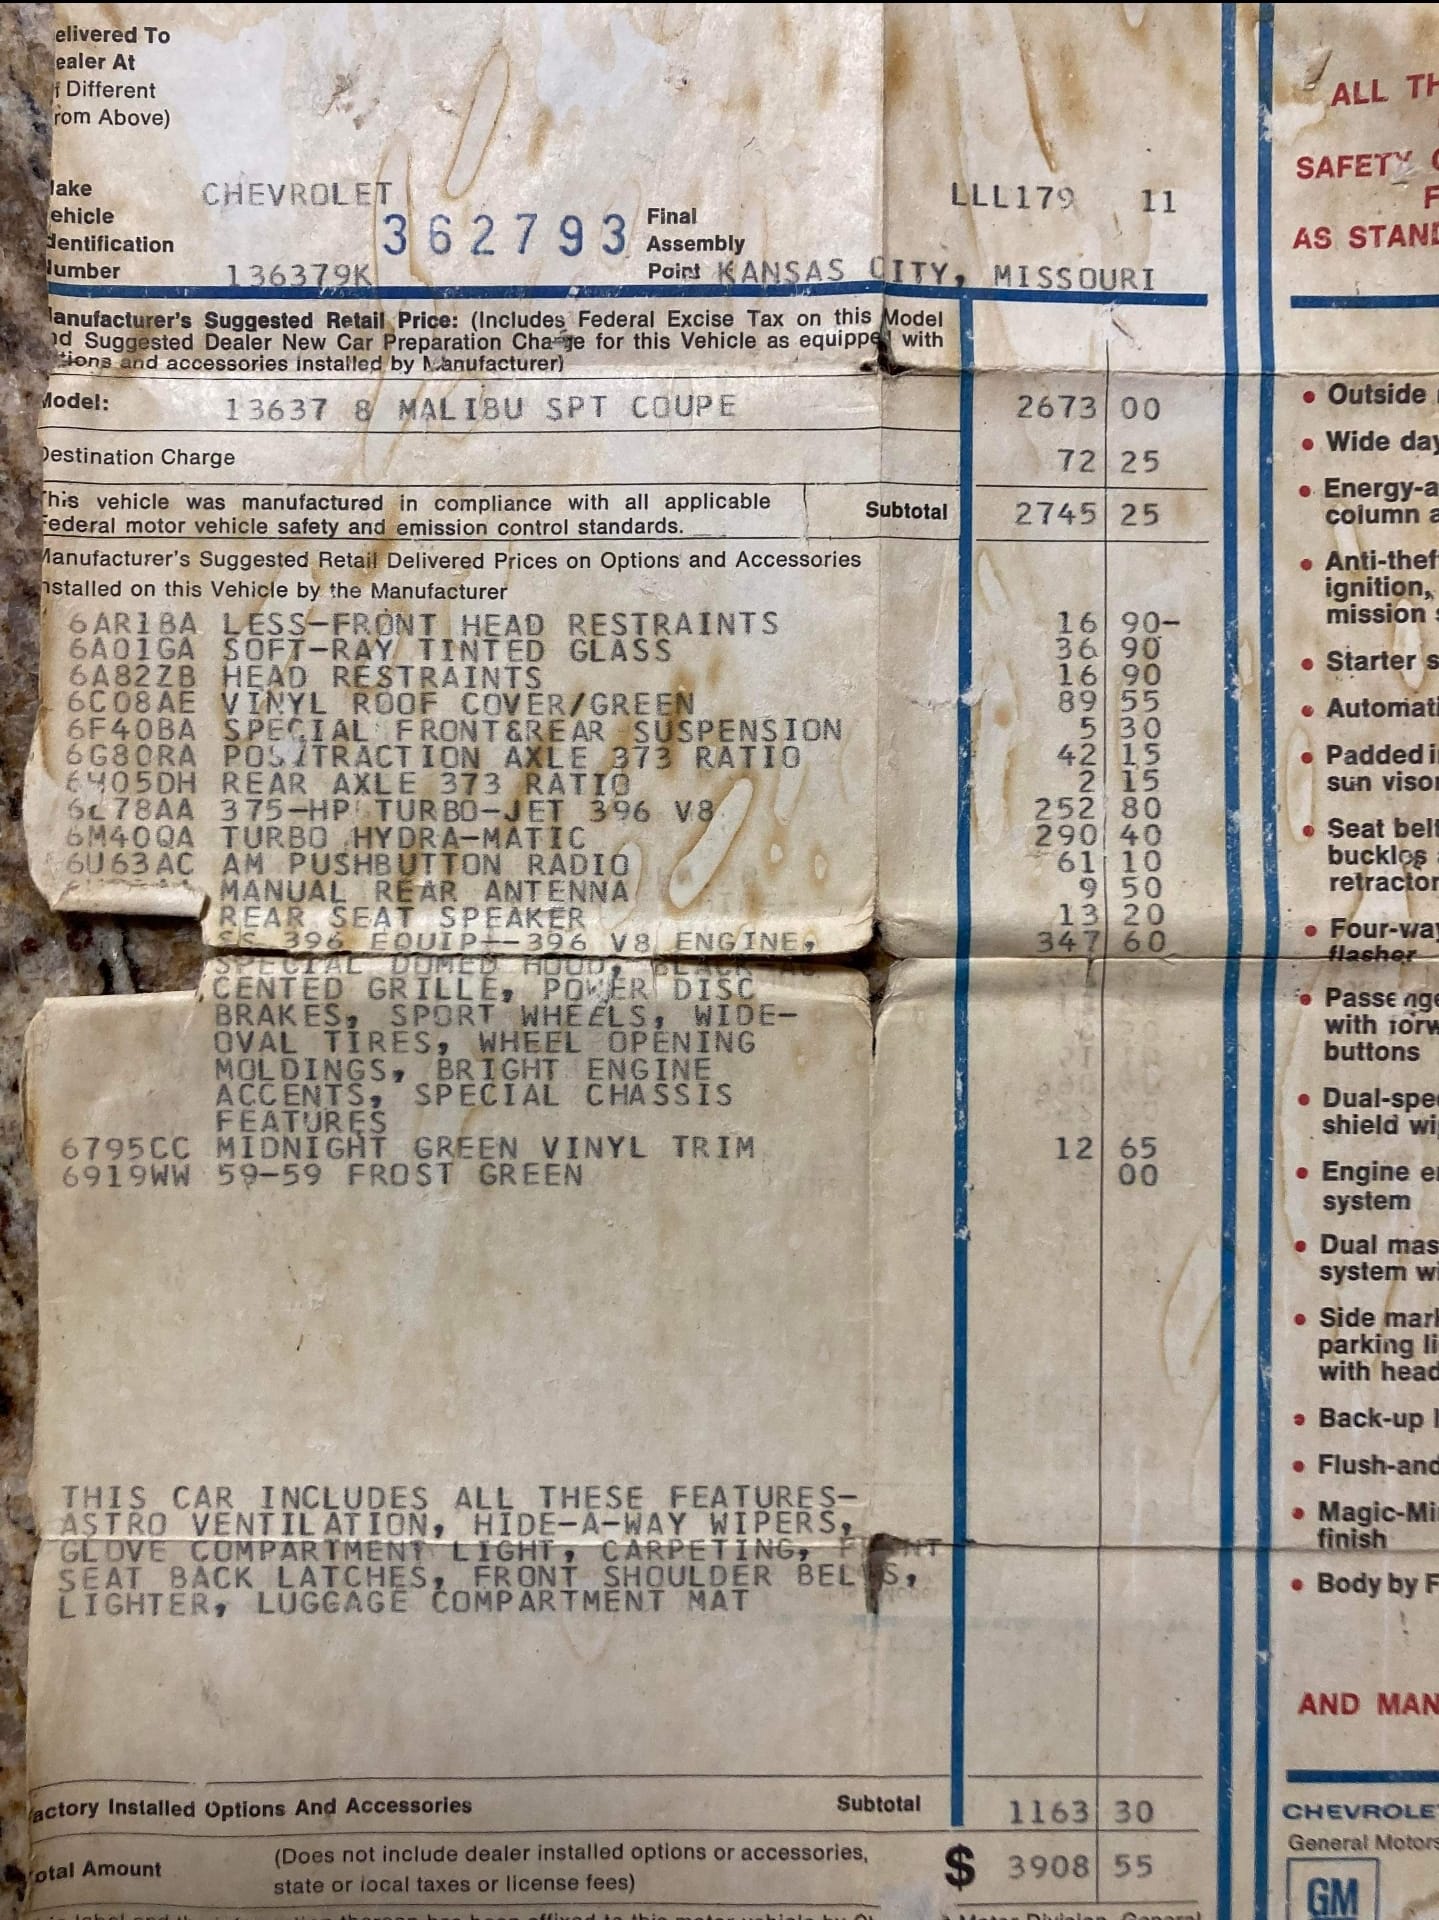 elivered To
ealer At
f Different
rom Above)
ake CHEVROLET LLL179 11
ehicle
dentification 362793
umber 136379K
Final
Assembly
Point KANSAS CITY, MISSOURI
anufacturer's Suggested Retail Price: (Includes Federal Excise Tax on this Model
nd Suggested Dealer New Car Preparation Charge for this Vehicle as equipped with
tions and accessories installed by Manufacturer)
Model: 13637 8 MALIBU SPT COUPE 2673 00
Destination Charge 72 25
This vehicle was manufactured in compliance with all applicable
Federal motor vehicle safety and emission control standards. Subtotal 2745 25
Manufacturer's Suggested Retail Delivered Prices on Options and Accessories
nstalled on this Vehicle by the Manufacturer
6AR1BA LESS-FRONT HEAD RESTRAINTS 16 90-
6A01GA SOFT-RAY TINTED GLASS 36 90
6A82ZB HEAD RESTRAINTS 16 90
6C08AE VINYL ROOF COVER/GREEN 89 55
6F40BA SPECIAL FRONT&REAR SUSPENSION 5 30
6G80RA POSITRACTION AXLE 373 RATIO 42 15
6H05DH REAR AXLE 373 RATIO 2 15
6L78AA 375-HP TURBO-JET 396 V8 252 80
6M40QA TURBO HYDRA-MATIC 290 40
6U63AC AM PUSHBUTTON RADIO 61 10
MANUAL REAR ANTENNA 9 50
REAR SEAT SPEAKER 13 20
SS 396 EQUIP--396 V8 ENGINE, 347 60
SPECIAL DOMED HOOD, BLACK AC
CENTED GRILLE, POWER DISC
BRAKES, SPORT WHEELS, WIDE-
OVAL TIRES, WHEEL OPENING
MOLDINGS, BRIGHT ENGINE
ACCENTS, SPECIAL CHASSIS
FEATURES
6795CC MIDNIGHT GREEN VINYL TRIM 12 65
6919WW 59-59 FROST GREEN 00
THIS CAR INCLUDES ALL THESE FEATURES-
ASTRO VENTILATION, HIDE-A-WAY WIPERS,
GLOVE COMPARTMENT LIGHT, CARPETING, FRONT
SEAT BACK LATCHES, FRONT SHOULDER BELTS,
LIGHTER, LUGGAGE COMPARTMENT MAT
actory Installed Options And Accessories Subtotal 1163 30
otal Amount (Does not include dealer installed options or accessories,
state or local taxes or license fees) $ 3908 55
Motor Division, General
ALL TH
SAFETY
F
AS STAND
• Outside
• Wide day
• Energy-a
column a
• Anti-thef
ignition,
mission s
• Starter s
• Automati
• Padded i
sun visor
• Seat belt
buckles
retractor
• Four-way
flasher
• Passenge
with forw
buttons
• Dual-spe
shield wi
• Engine e
system
• Dual mas
system wi
• Side mark
parking li
with head
• Back-up l
• Flush-and
• Magic-Mi
finish
• Body by F
AND MAN
CHEVROLE
General Motors
GM